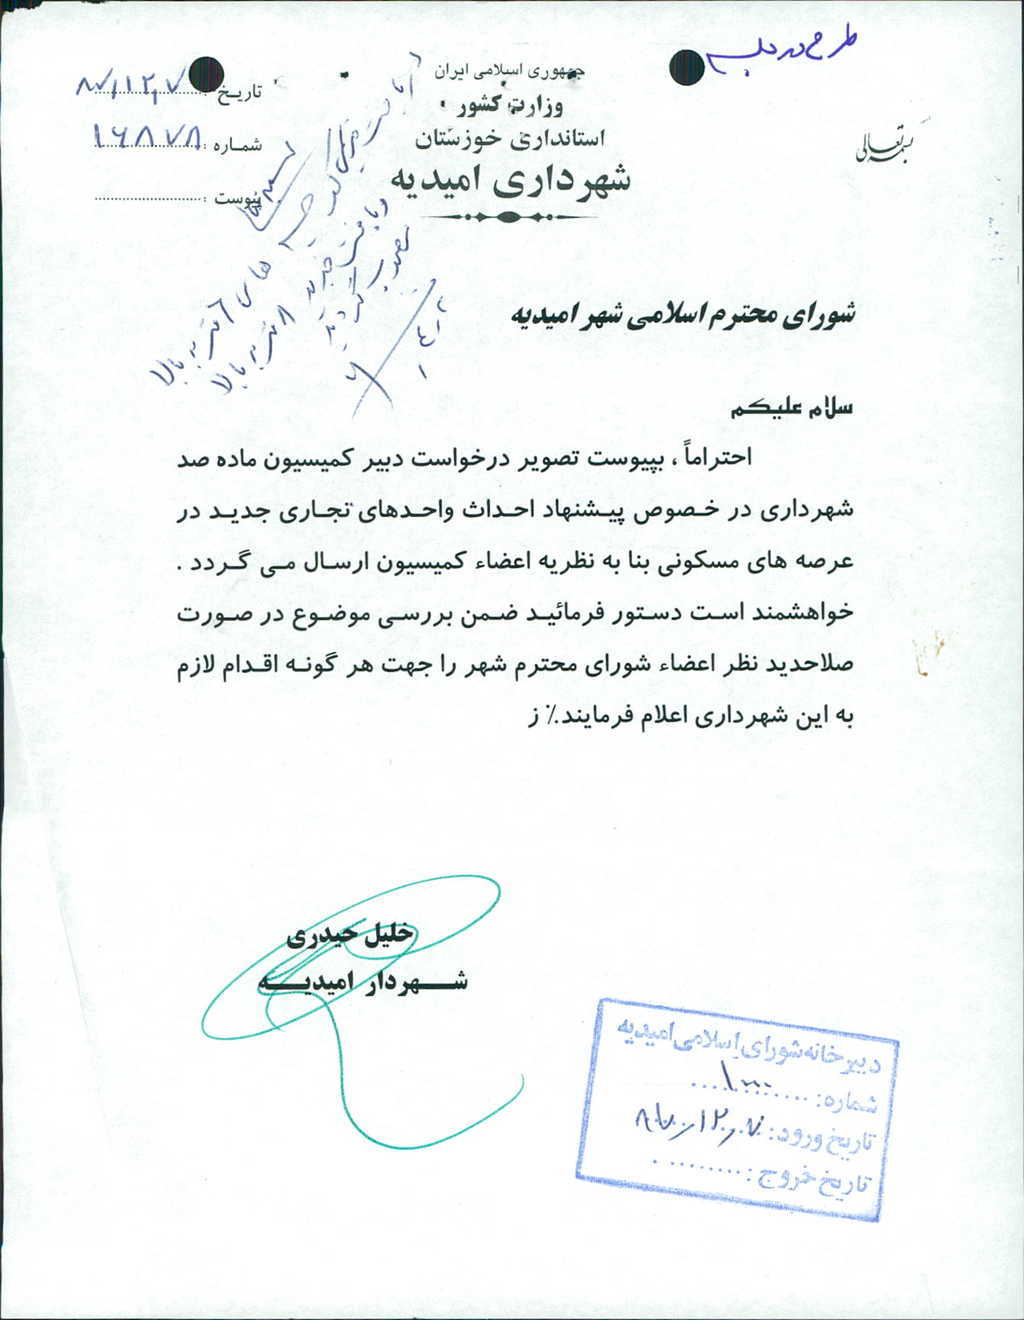 طرح در جلسه
بسمه تعالی
جمهوری اسلامی ایران
وزارت کشور
استانداری خوزستان
شهرداری امیدیه
تاریخ : ۸۷/۱۲/۷
شماره : ۱۶۸۷۸
پیوست :
شورای محترم اسلامی شهر امیدیه
سلام علیکم
احتراماً ، بپیوست تصویر درخواست دبیر کمیسیون ماده صد
شهرداری در خصوص پیشنهاد احداث واحدهای تجاری جدید در
عرصه های مسکونی بنا به نظریه اعضاء کمیسیون ارسال می گردد .
خواهشمند است دستور فرمائید ضمن بررسی موضوع در صورت
صلاحدید نظر اعضاء شورای محترم شهر را جهت هر گونه اقدام لازم
به این شهرداری اعلام فرمایند.٪ ز
خلیل حیدری
شهردار امیدیه
دبیرخانه شورای اسلامی امیدیه
شماره: ۱۰۰۰
تاریخ ورود: ۸۷/۱۲/۷
تاریخ خروج :